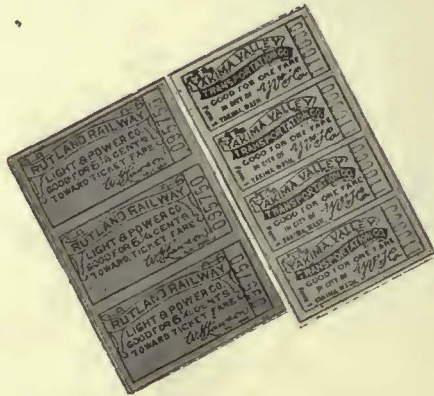 RUTLAND RAILWAY
LIGHT & POWER CO.
GOOD FOR 6¼ CENTS
TOWARD TICKET FARE
RUTLAND RAILWAY
LIGHT & POWER CO.
GOOD FOR 6¼ CENTS
TOWARD TICKET FARE
RUTLAND RAILWAY
LIGHT & POWER CO.
GOOD FOR 6¼ CENTS
TOWARD TICKET FARE
YAKIMA VALLEY
TRANSPORTATION CO.
GOOD FOR ONE FARE
IN CITY OF
YAKIMA WASH.
YAKIMA VALLEY
TRANSPORTATION CO.
GOOD FOR ONE FARE
IN CITY OF
YAKIMA WASH.
YAKIMA VALLEY
TRANSPORTATION CO.
GOOD FOR ONE FARE
IN CITY OF
YAKIMA WASH.
YAKIMA VALLEY
TRANSPORTATION CO.
GOOD FOR ONE FARE
IN CITY OF
YAKIMA WASH.